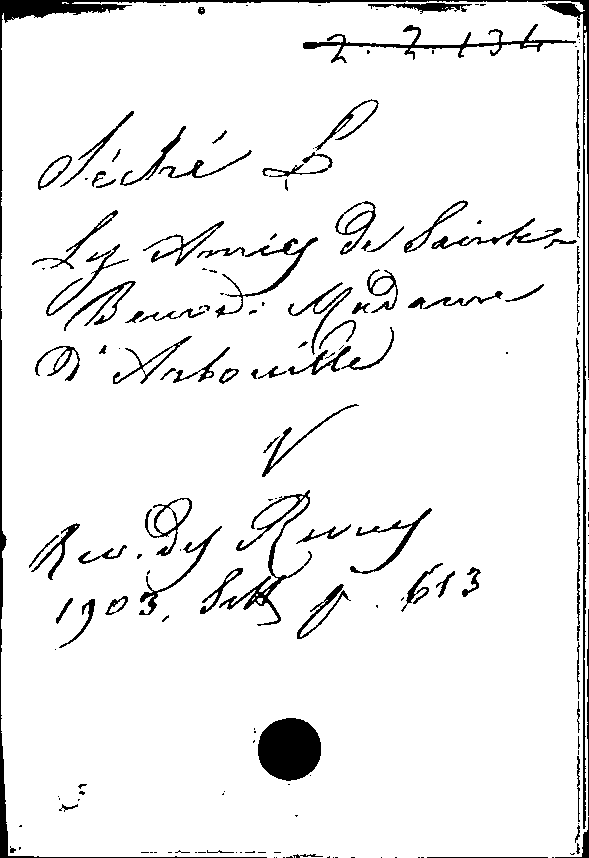 2.2.134
Séché L
Les Amies de Sainte-
Beuve: Madame
D'Arbouville
V
Rev. des Revues
1903, Sett p. 613